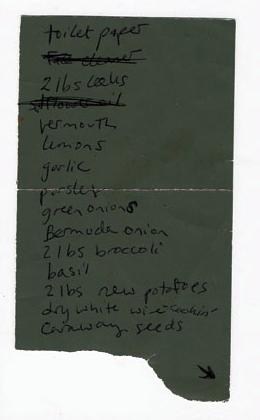 toilet paper
cleaner
2 lbs leeks
oil
vermouth
lemons
garlic
parsley
green onions
Bermuda onion
2 lbs broccoli
basil
2 lbs new potatoes
dry white wine
caraway seeds